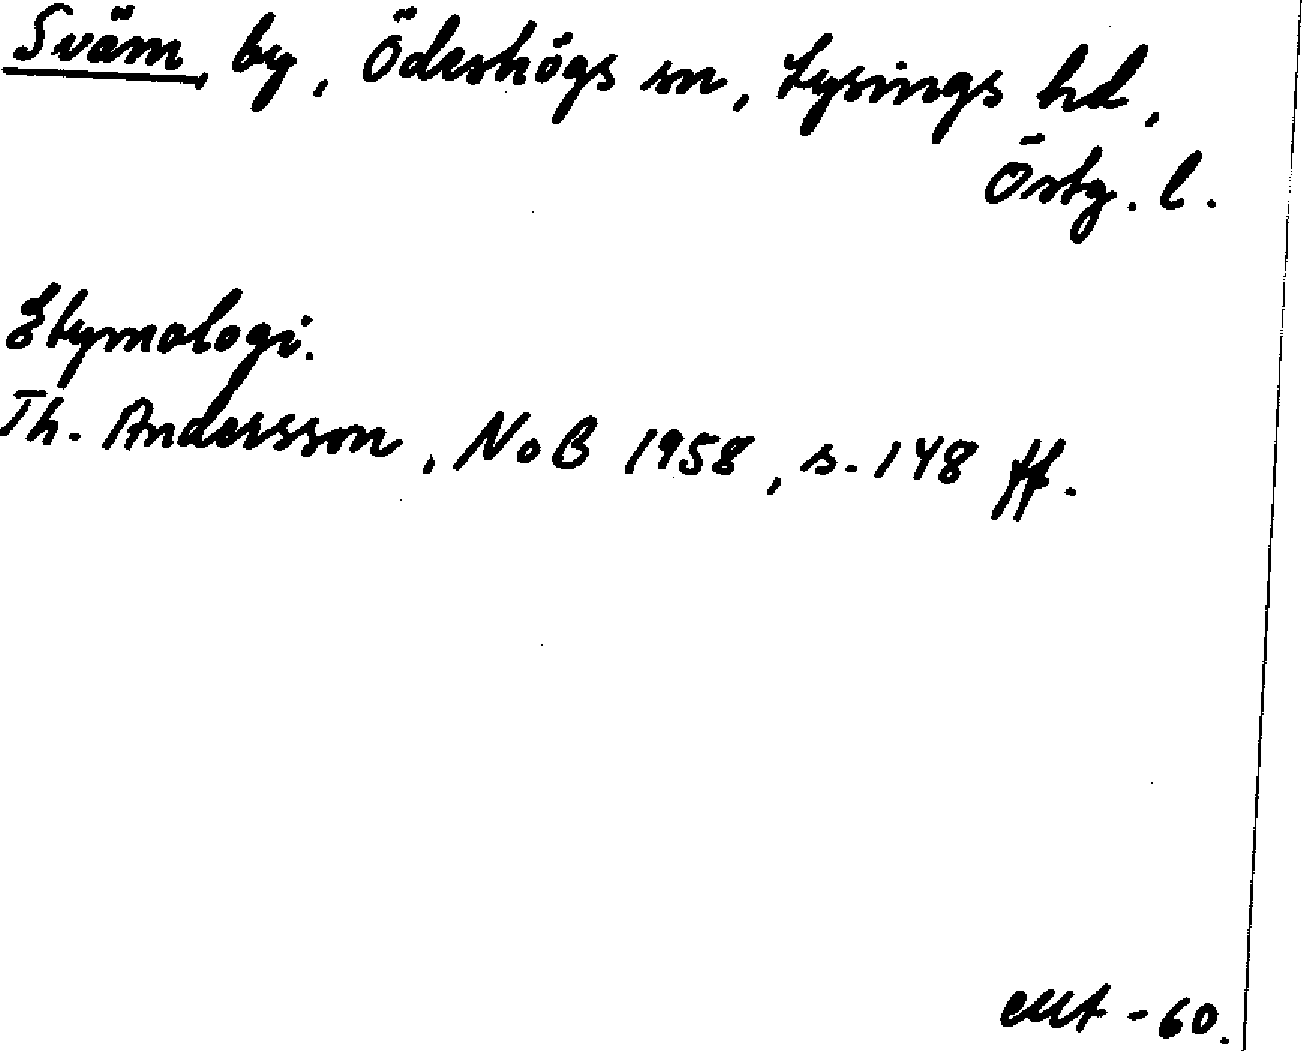 Sväm, by, Ödeshögs sn, Lysings hd,
Östg. l.
Etymologi.
Th. Andersson, NoB 1958, s. 148 ff.
-60.